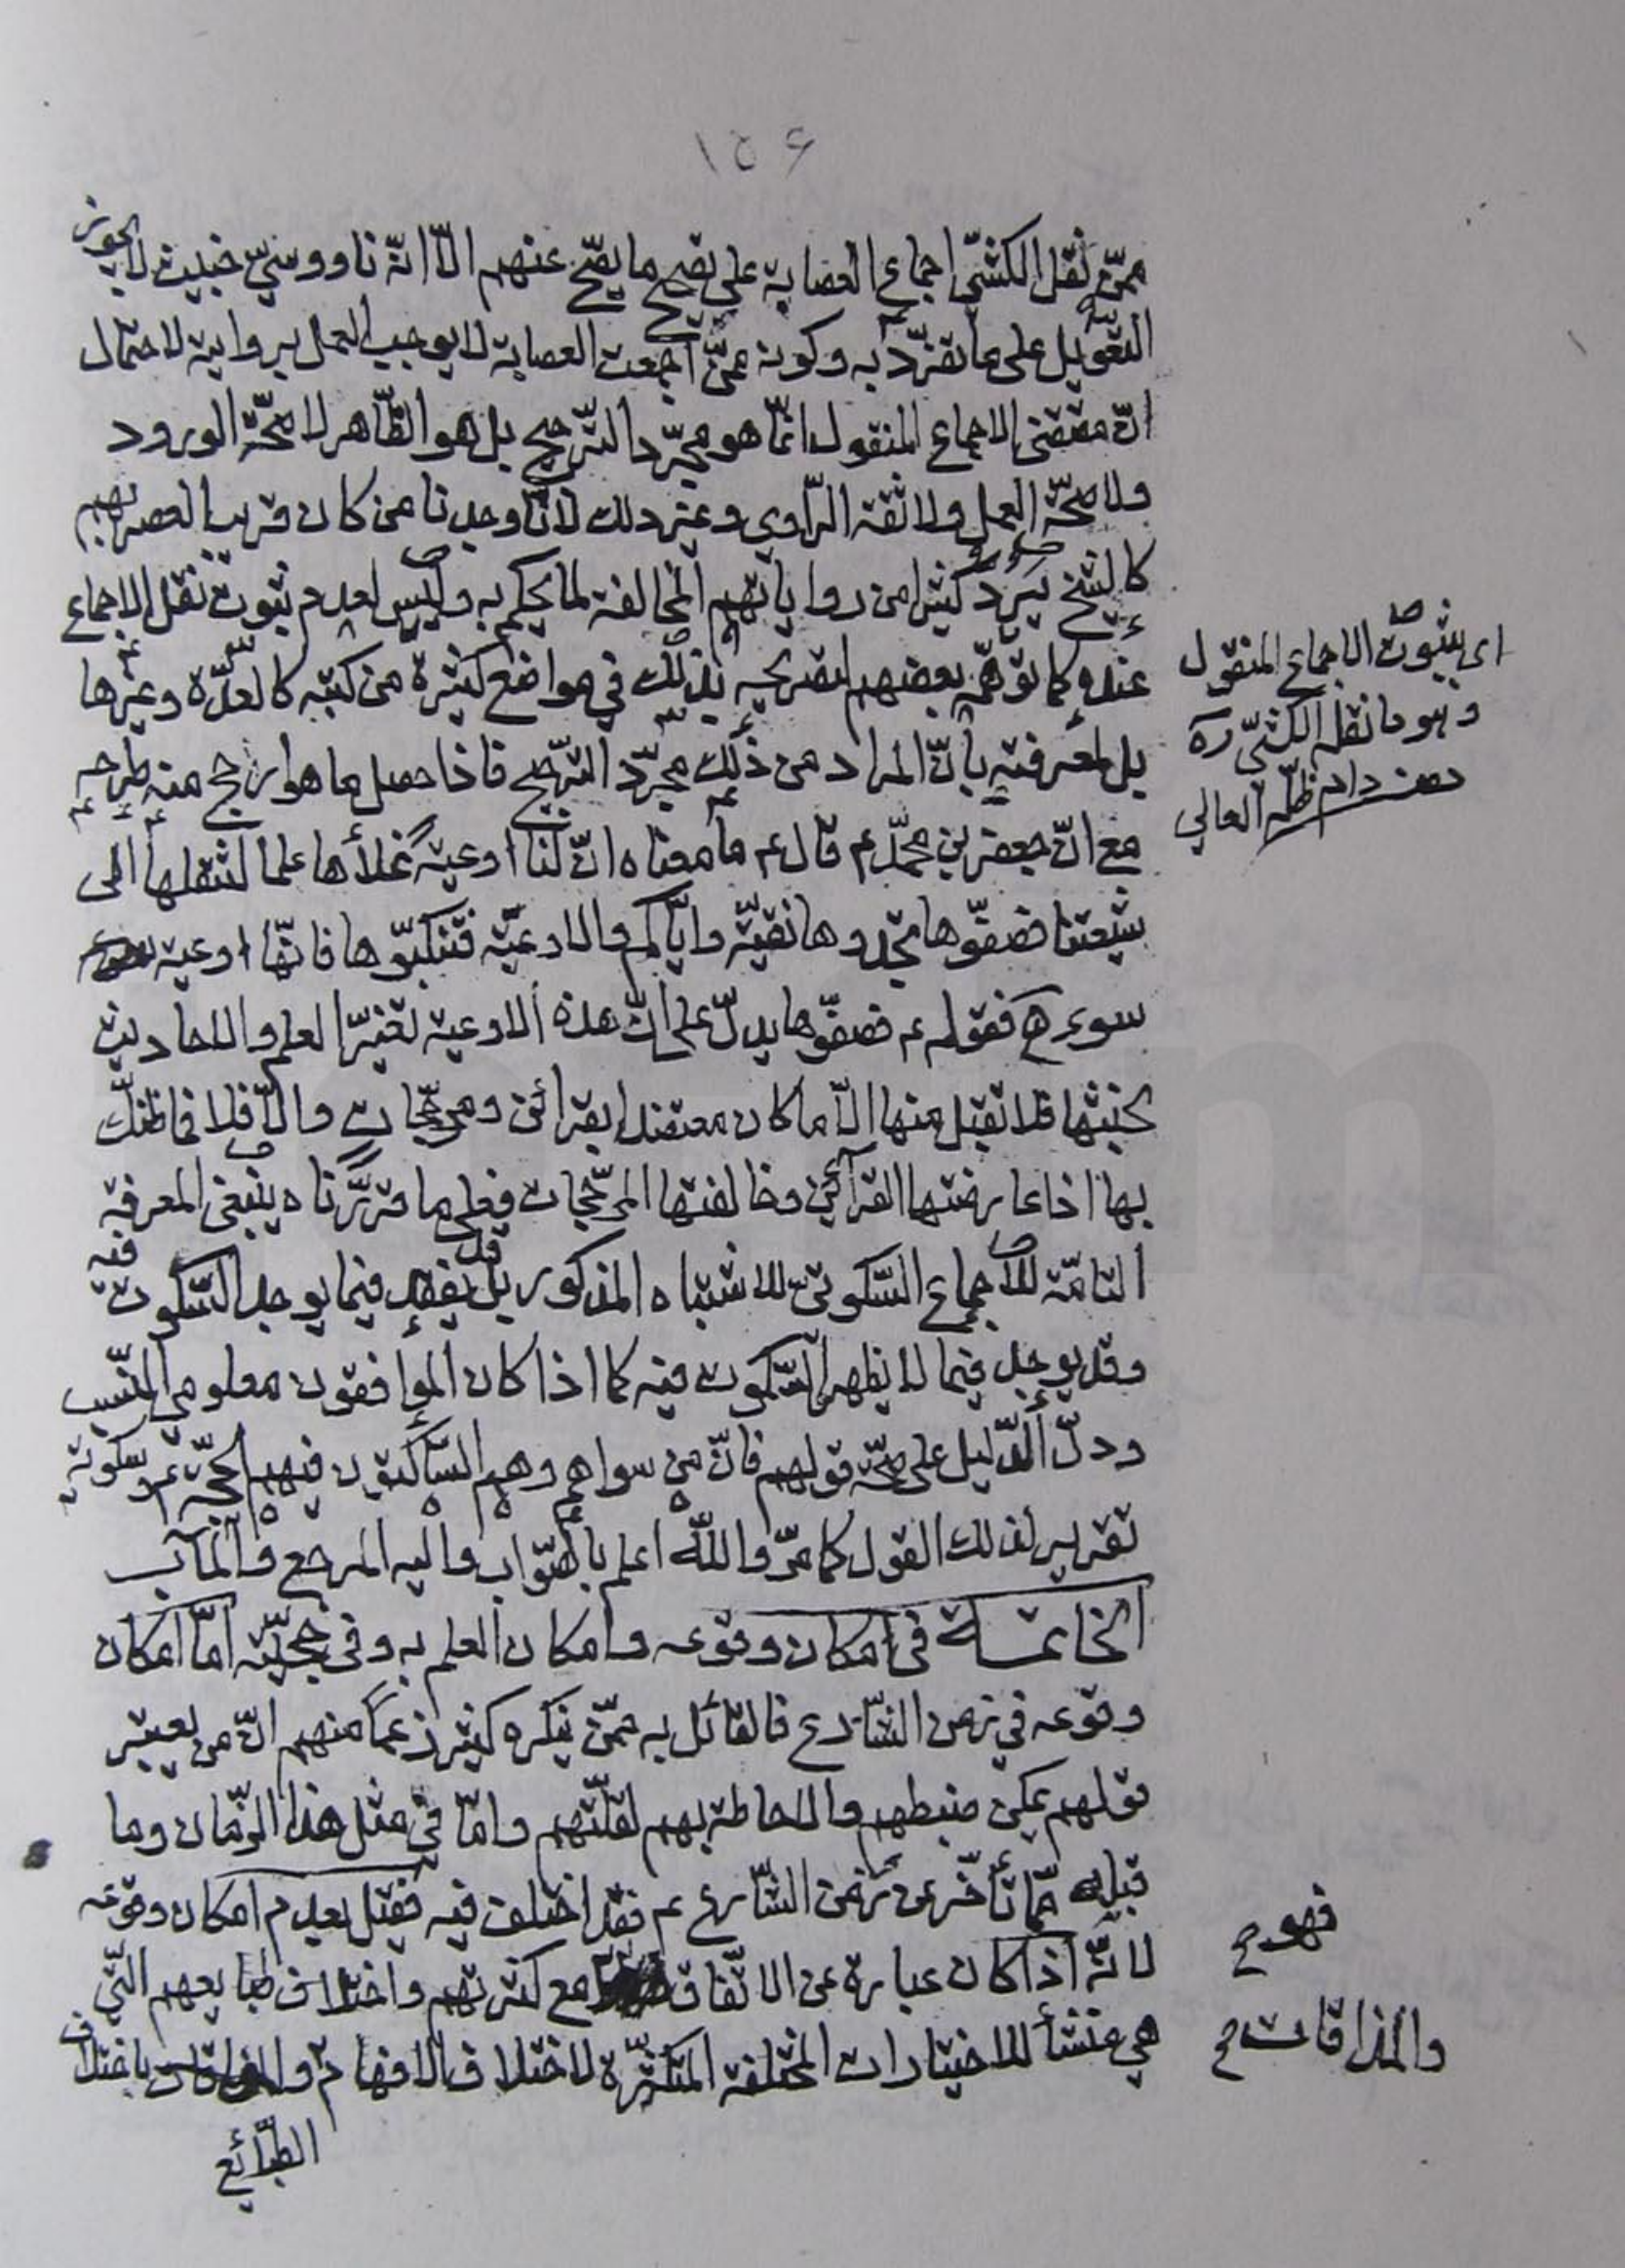 ١٥٤
ممّن نقل الكشّي اجماع العصابة على تصحيح ما يصحّ عنهم الّا انّه ناووسيّ خبيث لا يجوز
التعويل على ما تفرّد به وكونه ممّن اجمعت العصابة لا يوجب العمل بروايته لاحتمال
انّ مقتضى الاجماع المنقول انّما هو مجرّد الترجيح بل هو الظّاهر لا صحّة الورود
ولا صحّة العمل ولا ثقة الرّاوي وغير ذلك لانّا وجدنا من كان قريب العصر بهم
كالشيخ يردّ كثيرا من رواياتهم المخالفة لما يحكم به وليس لعدم ثبوت نقل الاجماع
عنده كما توهّمه بعضهم لتصريحه بذلك في مواضع كثيرة من كتبه كالعدّة وغيرها
بل لمعرفته بانّ المراد من ذلك مجرّد الترجيح فاذا حصل ما هو ارجح منه طرحه
مع انّ جعفر بن محمّد ع قال ع ما معناه انّ لنا اوعية نملأها علما لتنقلها الى
شيعتنا فصفّوها تجدوها نقيّة وايّاكم والاوعية فتنكبّوها فانّها اوعية
سوء ه فقوله ع فصفّوها يدلّ على انّ هذه الاوعية تغيّر العلم والاحاديث
بخبثها فلا تقبل منها الّا ما كان معتضدا بقرائن ومرجّحات والّا فلا فما ظنّك
بها اذا عارضتها القرآئن وخالفتها المرجّحات فعلى ما قرّرناه ينبغى المعرفة
التامّة للاجماع السّكوتيّ للاشتباه المذكور بل قد يفقد فيما يوجد السّكوت فيه
وقد يوجد فيما لا يظهر السّكوت فيه كما اذا كان الموافقون معلومي النّسب
ودلّ الدّليل على صحّة قولهم فانّ من سواهم وهم السّاكتون فيهم الحجّة ع وسكوته
تقرير لذلك القول كما مرّ واللّه اعلم بالصّواب واليه المرجع والمآب
الخاتمة فى امكان وقوعه وامكان العلم به وفى حجيّته امّا امكان
وقوعه في زمن الشّارع فالقائل به ممّن ينكره كثير زعما منهم انّ من يعتبر
قولهم يمكن ضبطهم والاحاطة بهم لقلّتهم وامّا في مثل هذا الزّمان وما
قبله ممّا تأخّر عن زمن الشّارع ع فقد اختلف فيه فقيل بعدم امكان وقوعه
لانّه اذا كان عبارة عن الاتّفاق مع كثرتهم واختلاف طبايعهم الّتي
هي منشأ للاختيارات المختلفة المتكثّرة لاختلاف الافهام و باختلاف
الطبائع
اى بثبوت الاجماع المنقول
وهو ما نقله الكشّي ره
دام ظلّه العالي
فهو ح
والمذاقات ح